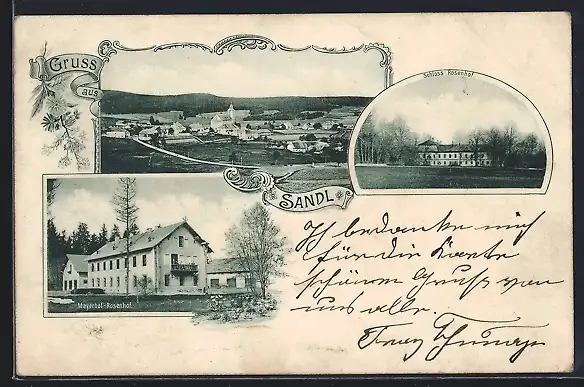 Gruss
aus
SANDL
Schloss Rosenhof
Mayerhof-Rosenhof.
Ich bedanke mich
für die Karte
schönen Gruß von
uns alle.
Franz